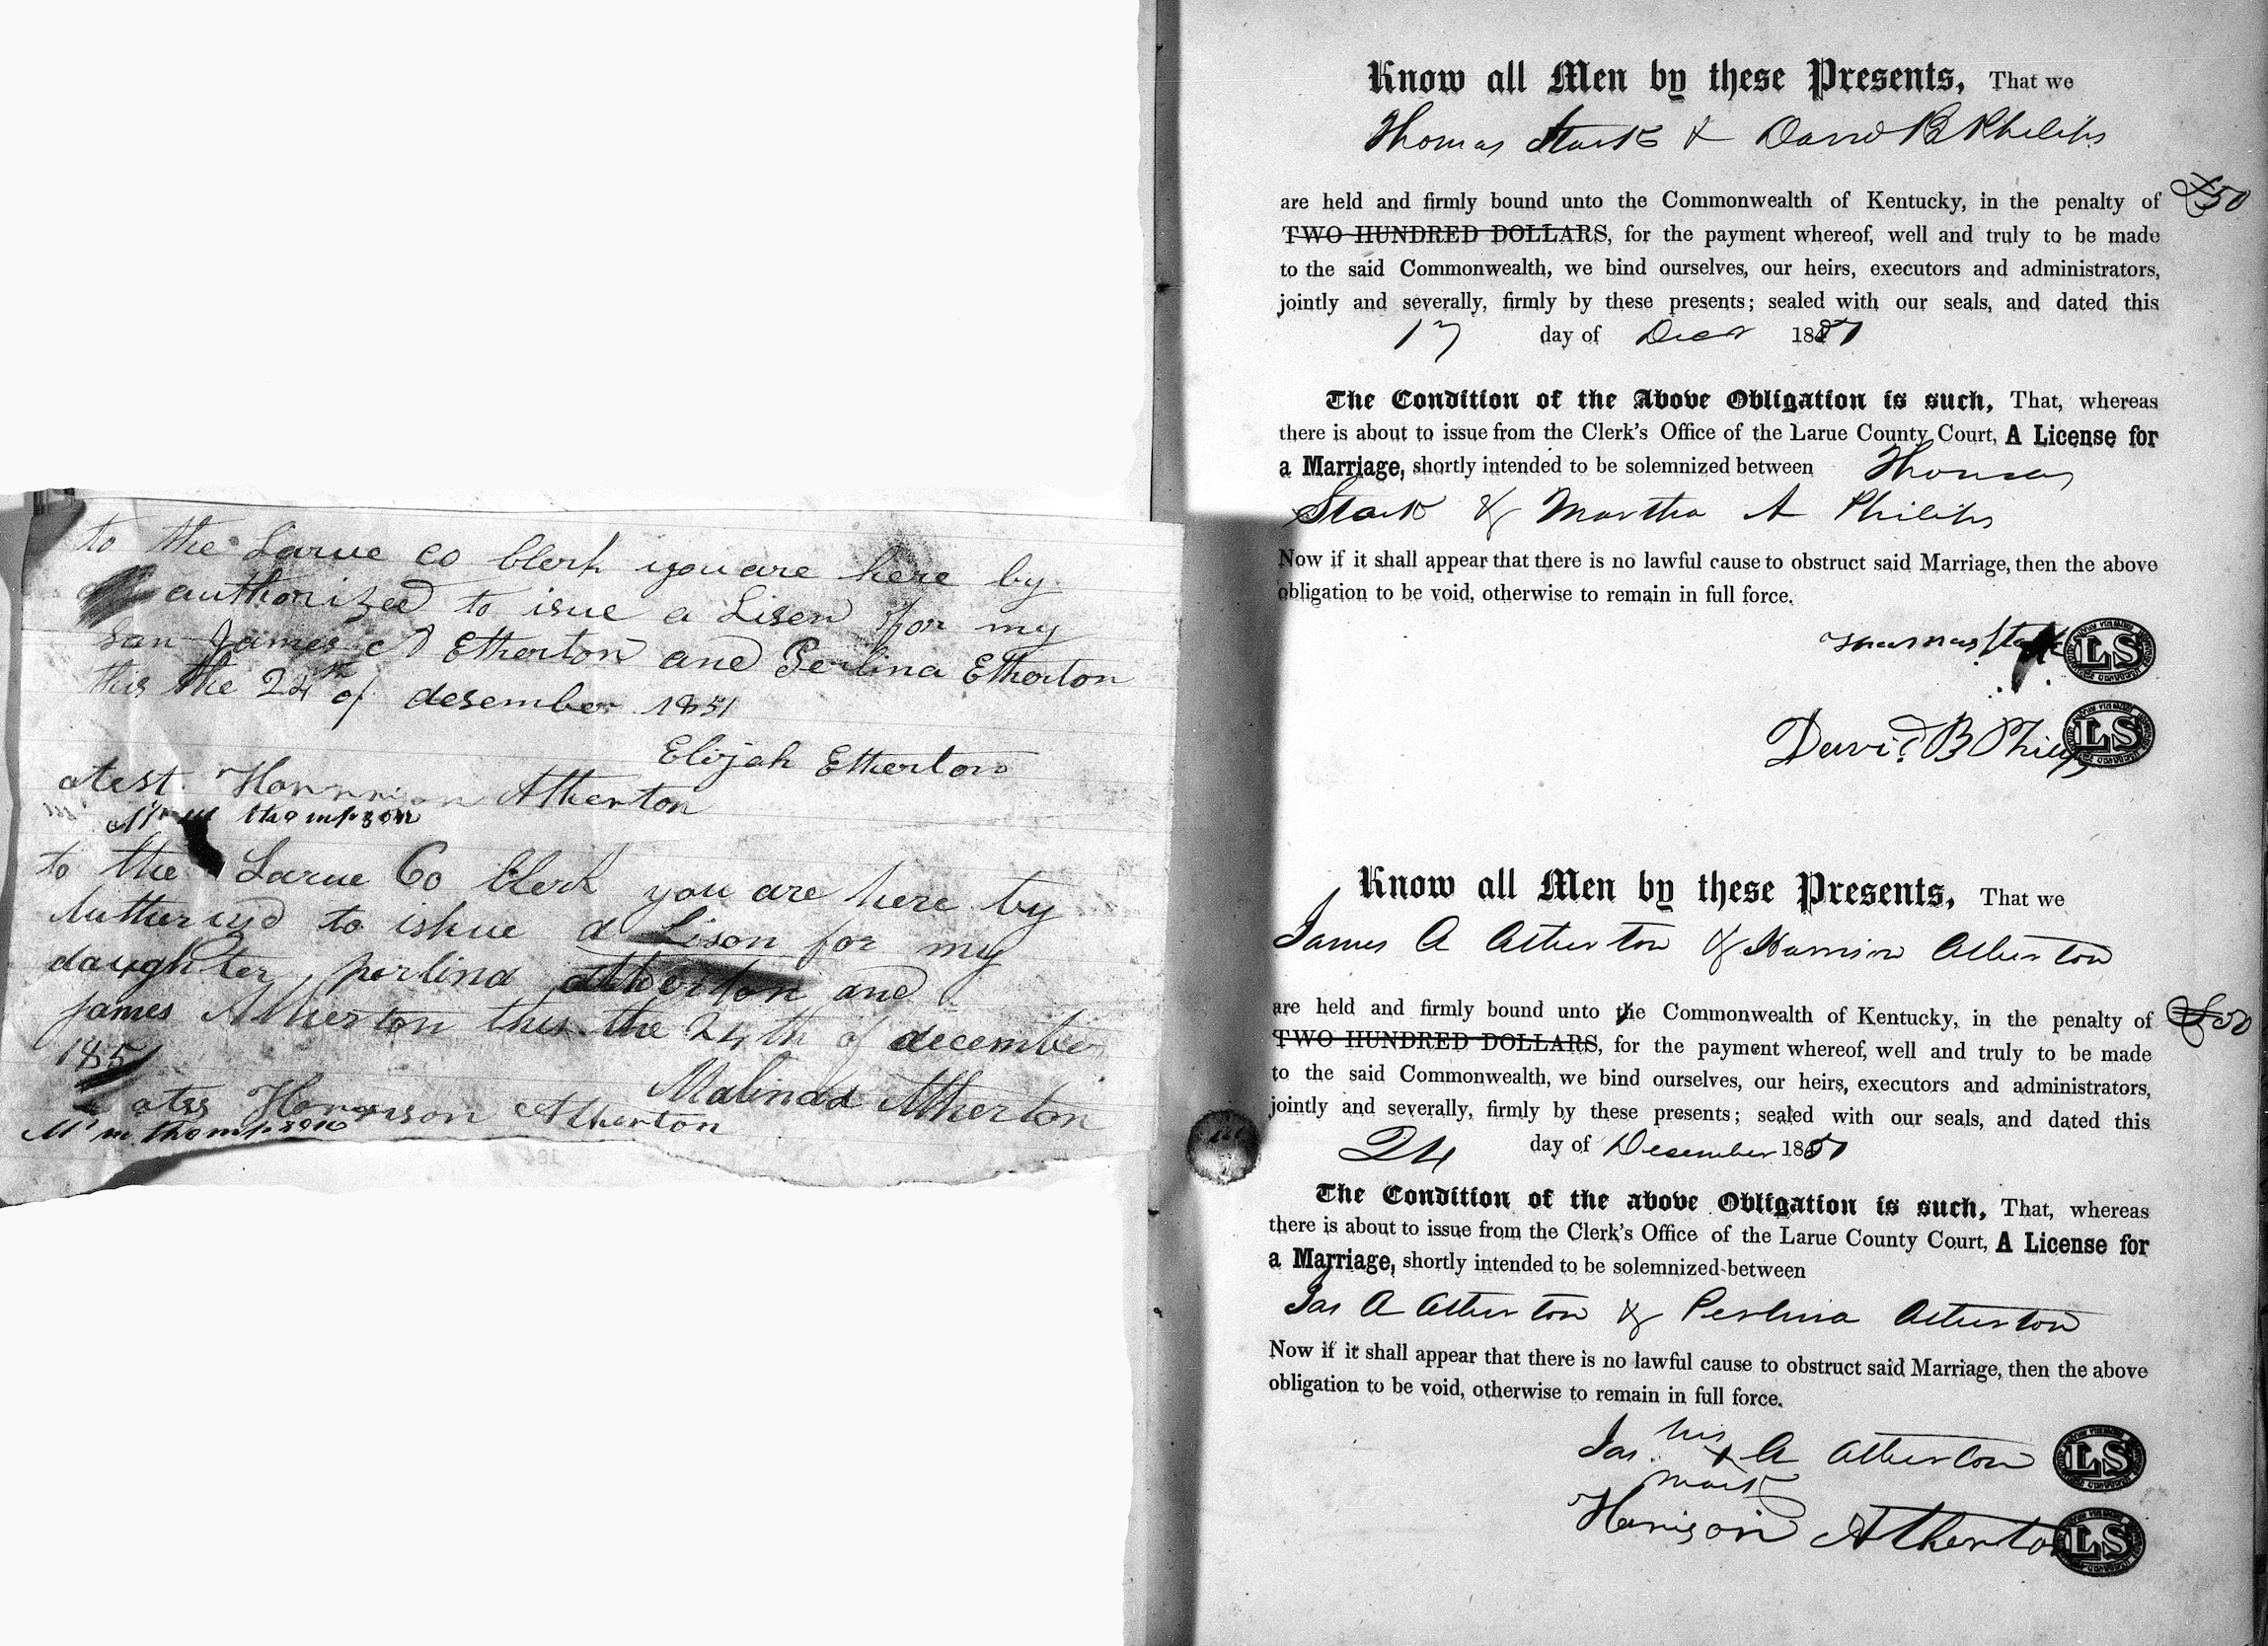 to the Larue co Clerk you are here by
authorized to isue a Lisen for my
san James A Etherton and Perlina Etherton
this the 24th of desember 1851
Elijah Etherton
atest. Harrison Atherton
thompson
to the Larue Co Clerk you are here by
to ishue a Lison for my
daughter perlina atherton and
james Atherton this the 24th of december
1851
Malinda Atherton
atss Harrison Atherton
thompson
Know all Men by these Presents, That we
Thomas Stark & David B Philips
are held and firmly bound unto the Commonwealth of Kentucky, in the penalty of £50
TWO HUNDRED DOLLARS, for the payment whereof, well and truly to be made
to the said Commonwealth, we bind ourselves, our heirs, executors and administrators,
jointly and severally, firmly by these presents; sealed with our seals, and dated this
17 day of Decr 1851
The Condition of the Above Obligation is such, That, whereas
there is about to issue from the Clerk's Office of the Larue County Court, A License for
a Marriage, shortly intended to be solemnized between Thomas
Stark & Martha A Philips
Now if it shall appear that there is no lawful cause to obstruct said Marriage, then the above
obligation to be void, otherwise to remain in full force.
Thomas Stark LS
David B Philips LS
Know all Men by these Presents, That we
James A Atherton & Harrison Atherton
are held and firmly bound unto the Commonwealth of Kentucky, in the penalty of £50
TWO HUNDRED DOLLARS, for the payment whereof, well and truly to be made
to the said Commonwealth, we bind ourselves, our heirs, executors and administrators,
jointly and severally, firmly by these presents; sealed with our seals, and dated this
24 day of Desember 1851
The Condition of the above Obligation is such, That, whereas
there is about to issue from the Clerk's Office of the Larue County Court, A License for
a Marriage, shortly intended to be solemnized between
Jas A Atherton & Perlina Atherton
Now if it shall appear that there is no lawful cause to obstruct said Marriage, then the above
obligation to be void, otherwise to remain in full force.
his
Jas. x A Atherton LS
mark
Harrison Atherton LS